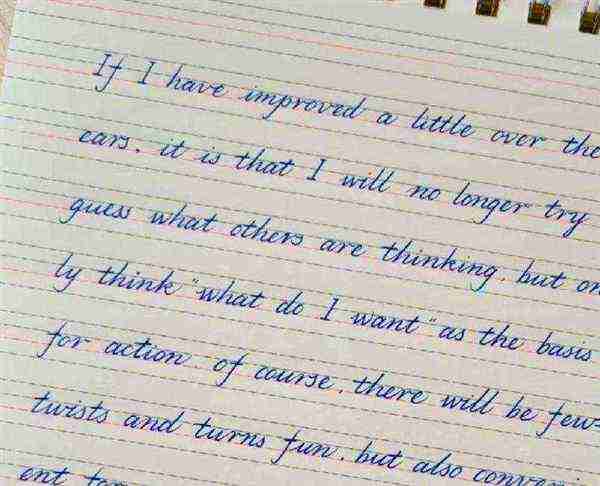 If I have improved a little over the
ears, it is that I will no longer try
guess what others are thinking, but on
ly think "what do I want" as the basis
for action of course, there will be few-
twists and turns fun, but also conveni
ent